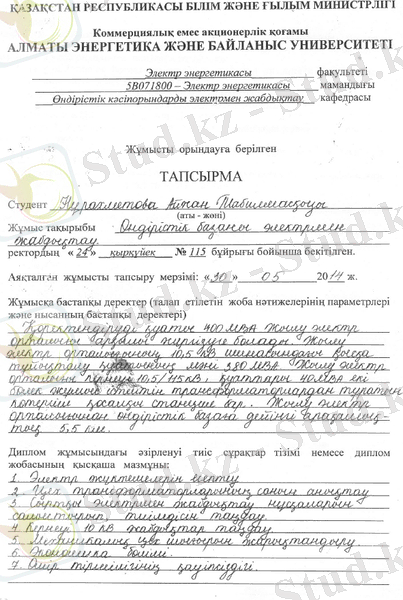 ҚАЗАҚСТАН РЕСПУБЛИКАСЫ БІЛІМ ЖӘНЕ ҒЫЛЫМ МИНИСТРЛІГІ
Коммерциялық емес акционерлік қоғамы
АЛМАТЫ ЭНЕРГЕТИКА ЖӘНЕ БАЙЛАНЫС УНИВЕРСИТЕТІ
Электр энергетикасы факультеті
5В071800 – Электр энергетикасы мамандығы
Өндірістік кәсіпорындарды электрмен жабдықтау кафедрасы
Жұмысты орындауға берілген
ТАПСЫРМА
Студент Нұрахметова
(аты - жөні)
Жұмыс тақырыбы Өндірістік базаны электрмен
жабдықтау
ректордың «24» қыркүйек № 115 бұйрығы бойынша бекітілген.
Аяқталған жұмысты тапсыру мерзімі: «30» 05 2014 ж.
Жұмысқа бастапқы деректер (талап етілетін жоба нәтижелерінің параметрлері
және нысанның бастапқы деректері)
Қоректендіруді қуаты 400 МВА жылу электр
орталығы арқылы жүргізуге болады. Жылу
электр орталығының 10,5 кВ шинасындағы қысқа
тұйықталу қуатының мәні 580 МВА. Жылу электр
орталығы кернеуі 10,5/115 кВ, қуаттары 40 МВА екі
бөлек жұмыс істейтін трансформаторлардан тұратын
көтергіш қосалқы станция бар. Жылу электр
орталығынан өндірістік базаға дейінгі арақашық-
тық 5,5 км.
Диплом жұмысындағы әзірленуі тиіс сұрақтар тізімі немесе диплом
жобасының қысқаша мазмұны:
1. Электр жүктемелерін есептеу
2. Цех трансформаторларының санын анықтау
3. Сыртқы электрмен жабдықтау нұсқаларын
салыстырып, тиімдісін таңдау
4. Кернеуі 10 кВ жабдықтар таңдау
5. Механикалық цех жарықтандыру
6. Экономика бөлімі.
7. Өмір тіршілігінің қауіпсіздігі.
Stud.kz - Stud.kz